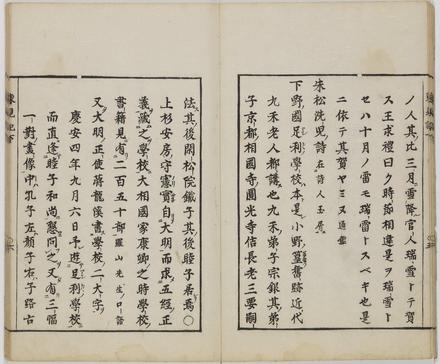 ノ人其比三月雪降官人瑞雪トテ賀
ス王求禮曰ク時節相違是ヲ瑞雪ト
セハ十月ノ雷モ瑞雷トスベキ也是
ニ依テ其賀ヤミヌ通鑑
朱松洗児詩在詩人玉屑
下野國足利學校本是小野篁舊跡近代
九禾老人都講也九禾弟子宗銀其弟
子京都相國寺圓光寺佶長老三要嗣
法其後閑松院鐵子其後睦子若焉〇
上杉安房守憲實自大明而求五經正
義藏之學校大相國家康卿之時學校
書籍見有二百五十部羅山先生ノ口語
又大明正使蔣龍溪書學校二大字
慶安四年九月六日予遊足利學校
而直逢睦子和尚懇問之又有三幅
一對畫像中孔子左顏子右子路古